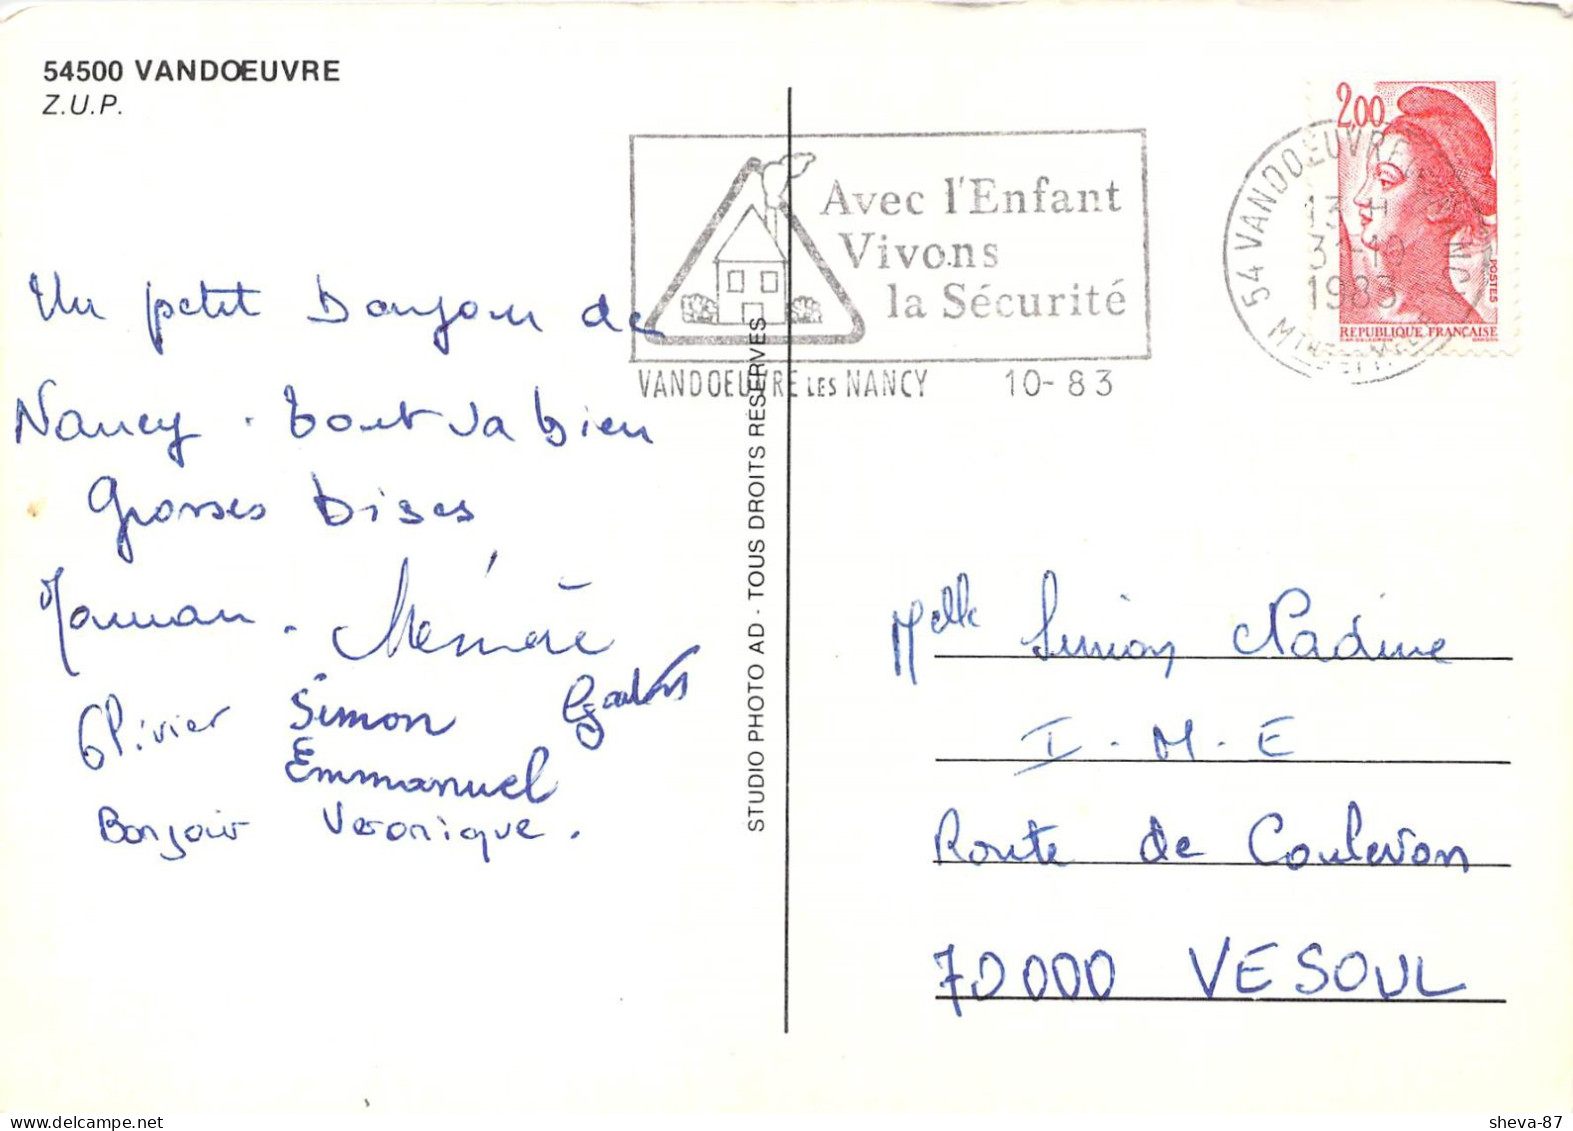 54500 VANDŒUVRE
Z.U.P.
Un petit Bonjour de
Nancy. Tout va bien
Grosses Bises
Maman. Mémère
Olivier Simon
Emmanuel
Bonjour Veronique.
STUDIO PHOTO AD - TOUS DROITS RÉSERVÉS
Avec l'Enfant
Vivons
la Sécurité
VANDOEUVRE LES NANCY 10-83
2,00
POSTES
REPUBLIQUE FRANÇAISE
54 VANDOEUVRE
13 H
31-10
1983
Melle Simon Nadine
I.M.E
Route de Coulevon
70000 VESOUL
sheva-87